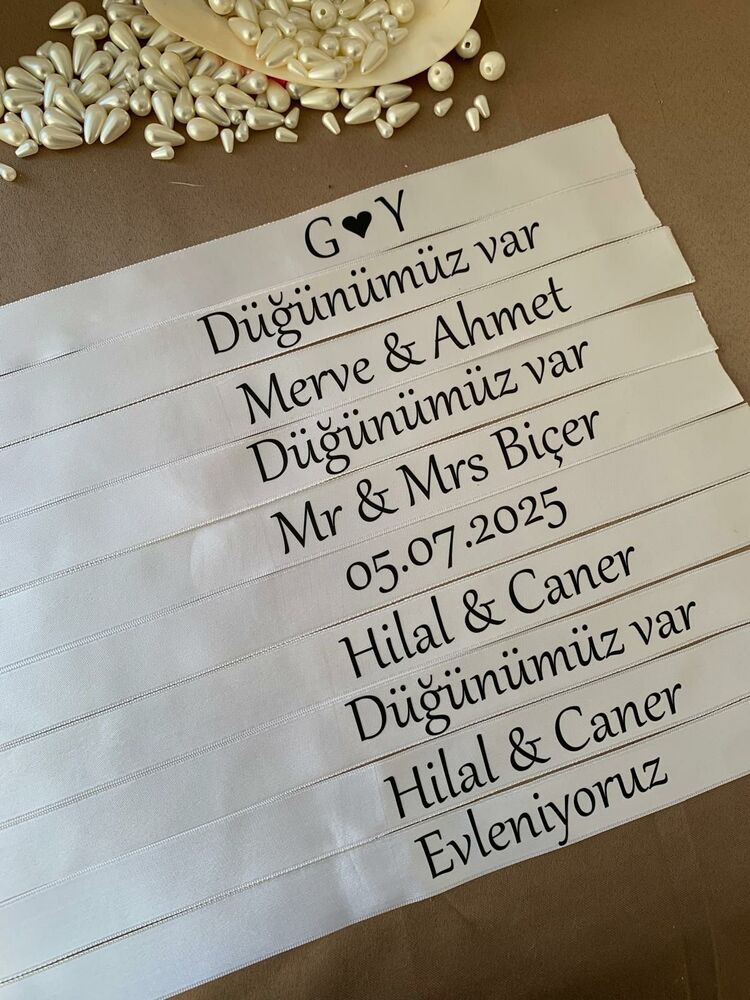 G♥Y
Düğünümüz var
Merve & Ahmet
Düğünümüz var
Mr & Mrs Biçer
05.07.2025
Hilal & Caner
Düğünümüz var
Hilal & Caner
Evleniyoruz